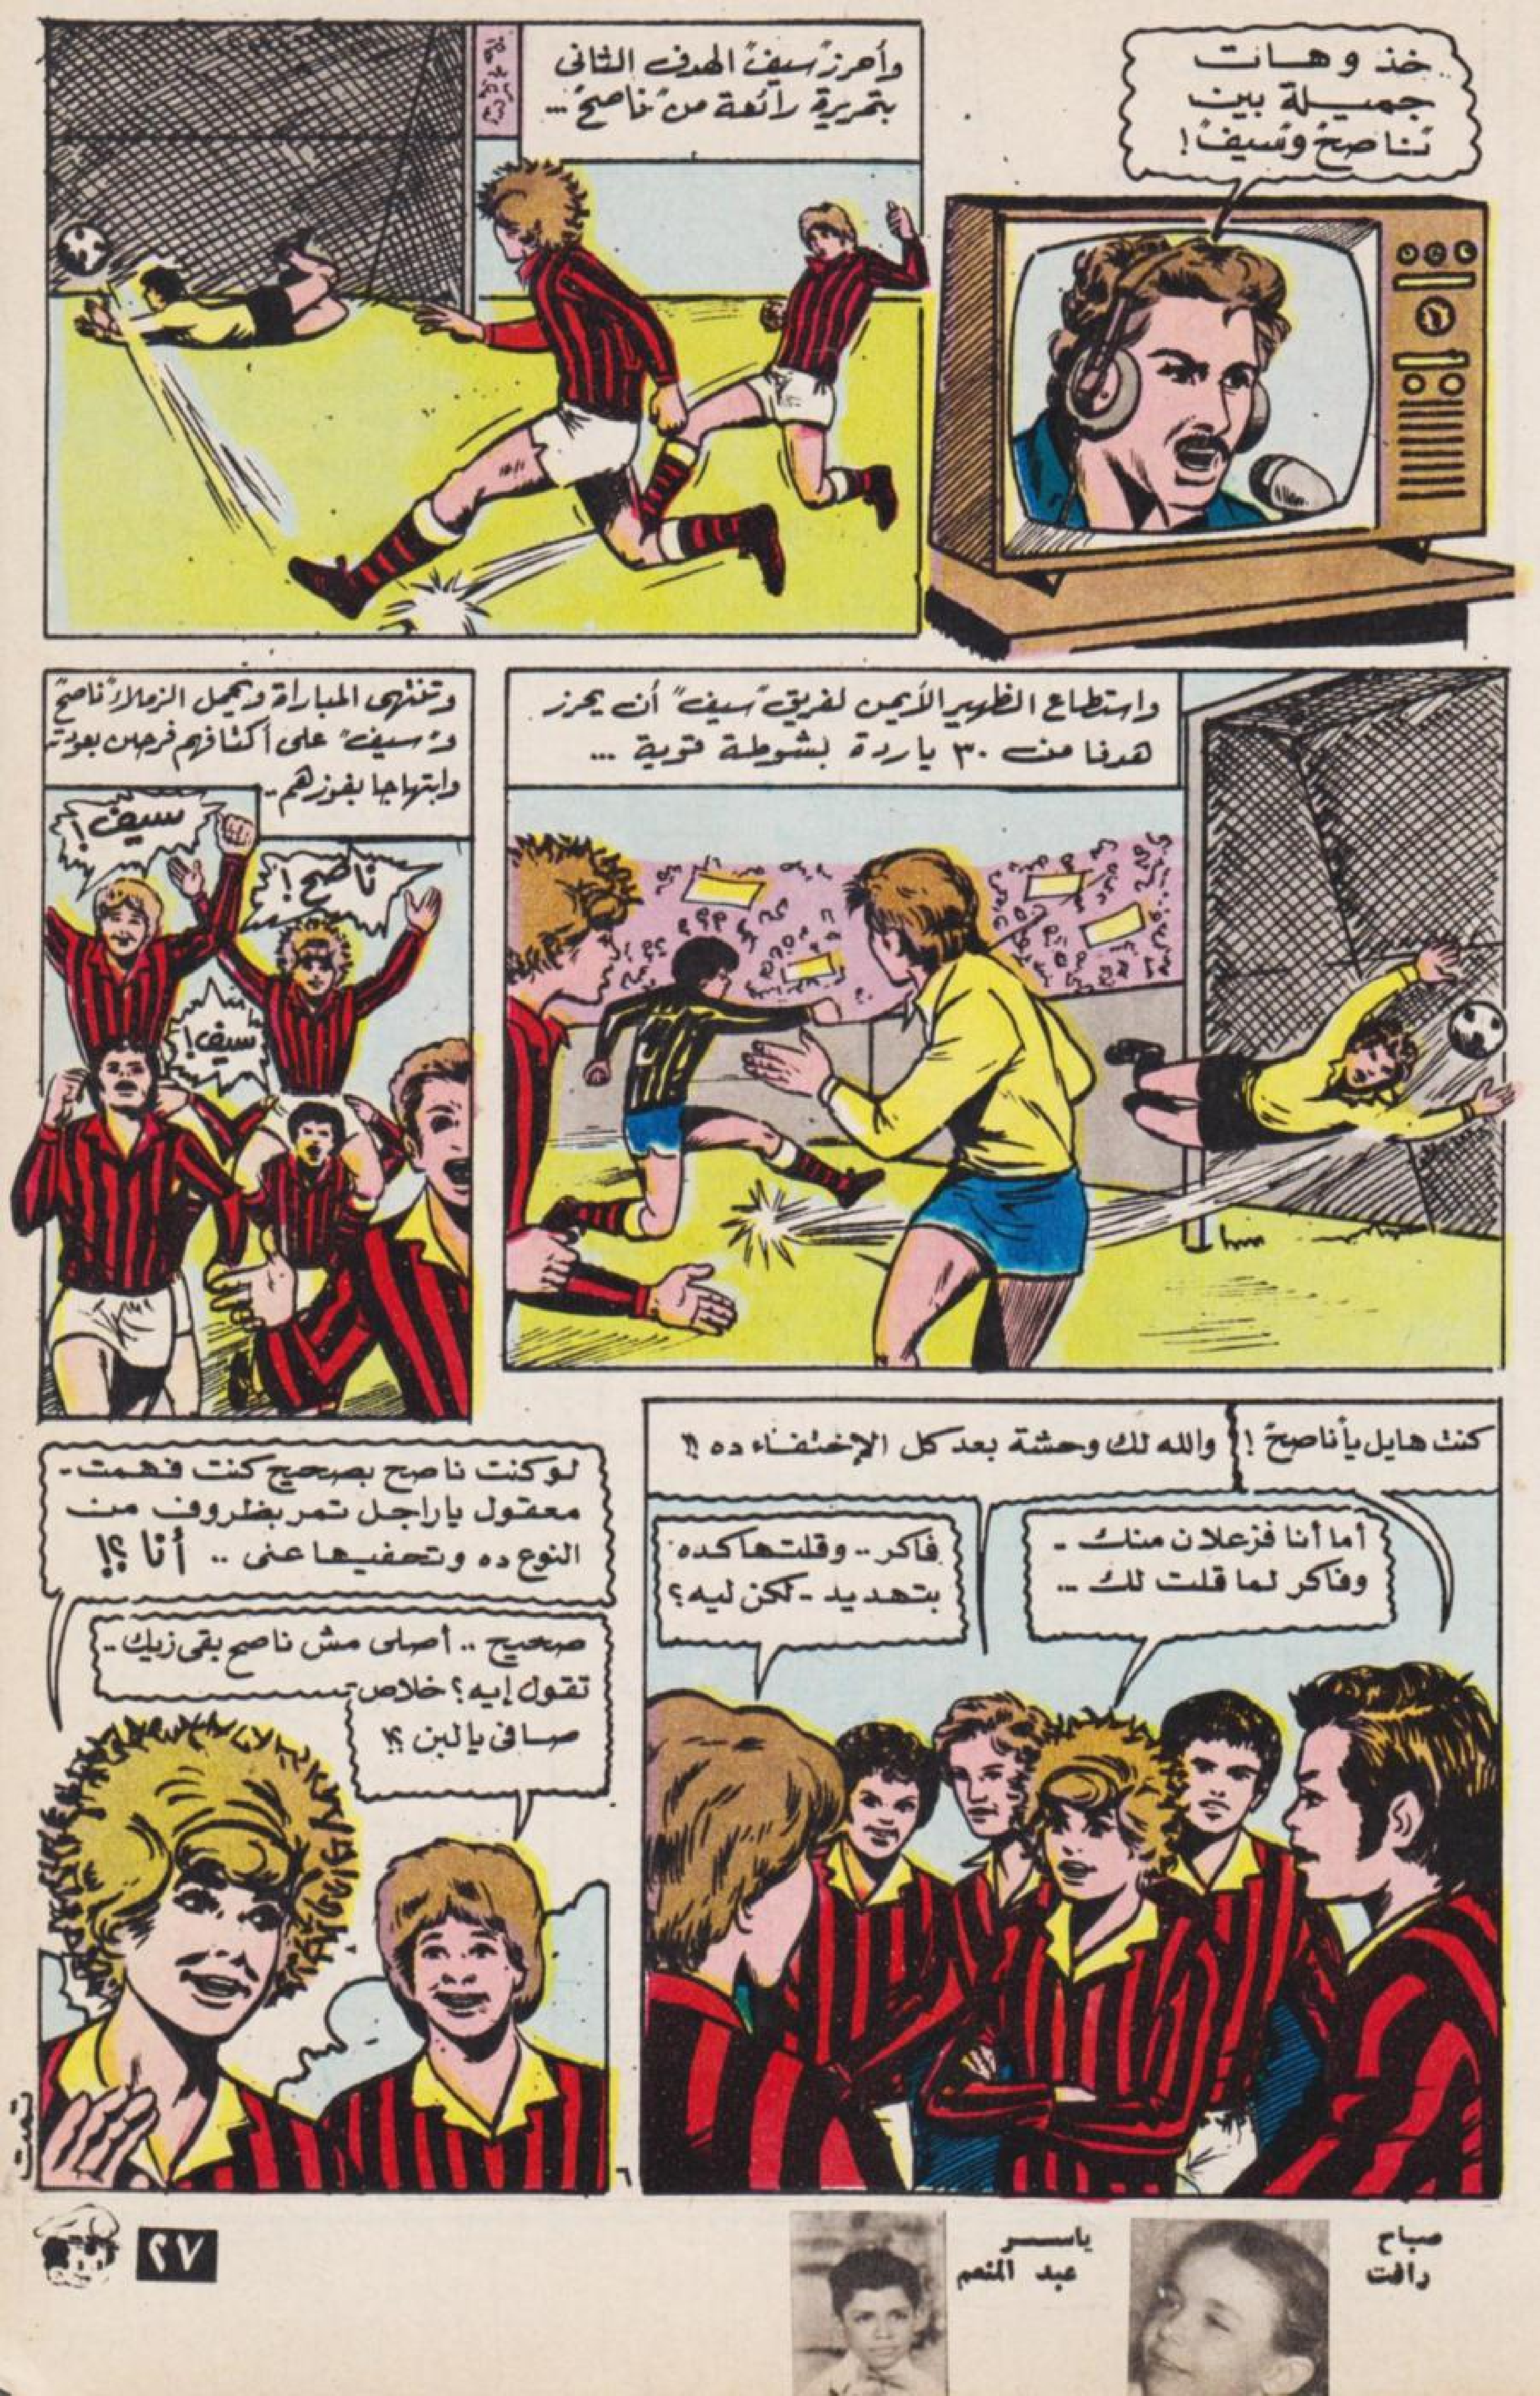 خذ وهات
جميلة بين
"ناصح" و"سيف"!
وأحرز "سيف" الهدف الثانى
بتمريرة رائعة من "ناصح" ...
واستطاع الظهير الأيمن لفريق "سيف" أن يحرز
هدفا من ٣٠ ياردة بشوطة قوية ...
وتنتهى المباراة ويحمل الزملاء "ناصح"
و"سيف" على أكتافهم فرحين بعودته
وابتهاجا بفوزهم ..
سيف!
ناصح!
سيف!
كنت هايل يا "ناصح"!
والله لك وحشة بعد كل الإختفاء ده !!
أما أنا فزعلان منك -
وفاكر لما قلت لك ...
فاكر .. وقلتها كده
بتهديد - لكن ليه؟
لو كنت ناصح بصحيح كنت فهمت -
معقول ياراجل تمر بظروف من
النوع ده وتخفيها عنى .. أنا ؟!
صحيح .. أصلى مش ناصح بقى زيك ..
تقول إيه؟ خلاص
صافى يالبن ؟!
تمت
٦
صباح
رافت
ياسر
عبد المنعم
٢٧